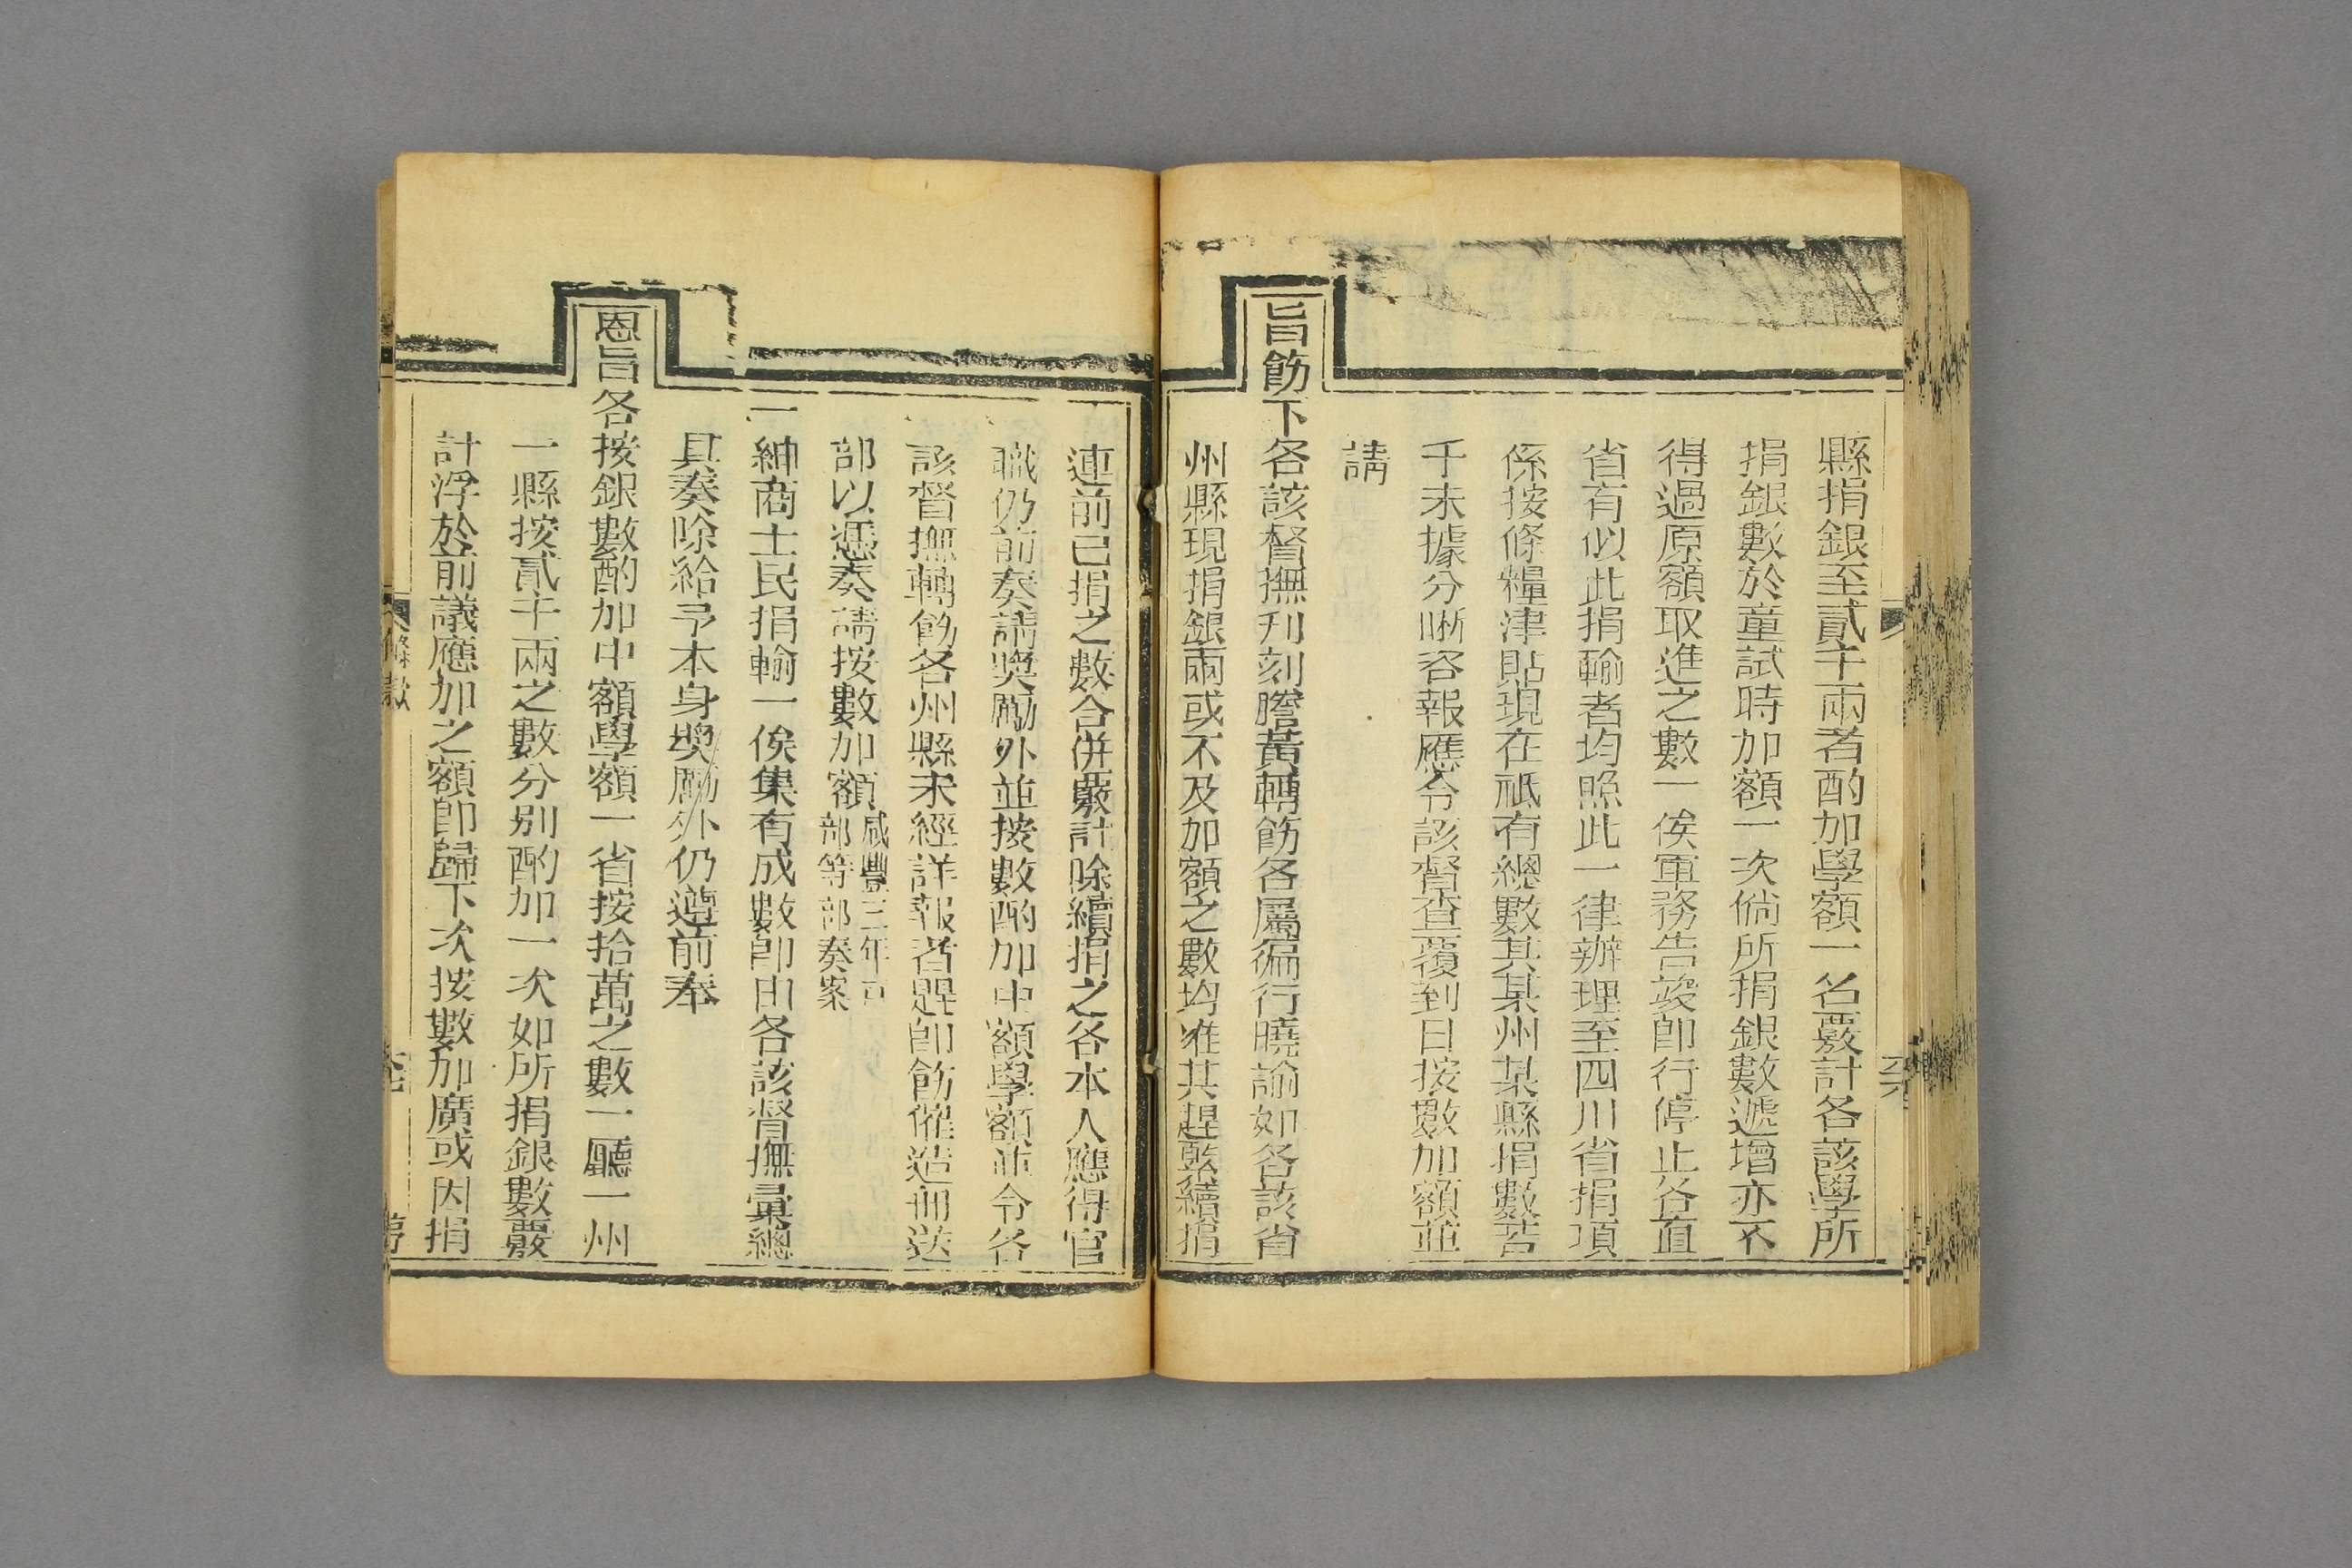 縣捐銀至貳千兩者酌加學額一名覈計各該學所
捐銀數於童試時加額一次倘所捐銀數遞增亦不
得過原額取進之數一俟軍務告竣卽行停止各直
省有似此捐輸者均照此一律辦理至四川省捐項
係按條糧津貼現在祗有總數其某州某縣捐數若
干未據分晰咨報應令該督查覆到日按數加額並
請
旨飭下各該督撫刊刻謄黃轉飭各屬徧行曉諭如各該省
州縣現捐銀兩或不及加額之數均准其趕緊續捐
連前已捐之數合併覈計除續捐之各本人應得官
職仍前奏請奬勵外並按數酌加中額學額並令各
該督撫轉飭各州縣未經詳報者趕卽飭催造冊送
部以憑奏請按數加額
咸豐三年戸
部等部奏案
一紳商士民捐輸一俟集有成數卽由各該督撫彙總
具奏除給予本身奬勵外仍遵前奉
恩旨各按銀數酌加中額學額一省按拾萬之數一廳一州
一縣按貳千兩之數分別酌加一次如所捐銀數覈
計浮於前議應加之額卽歸下次按數加廣或因捐
條款